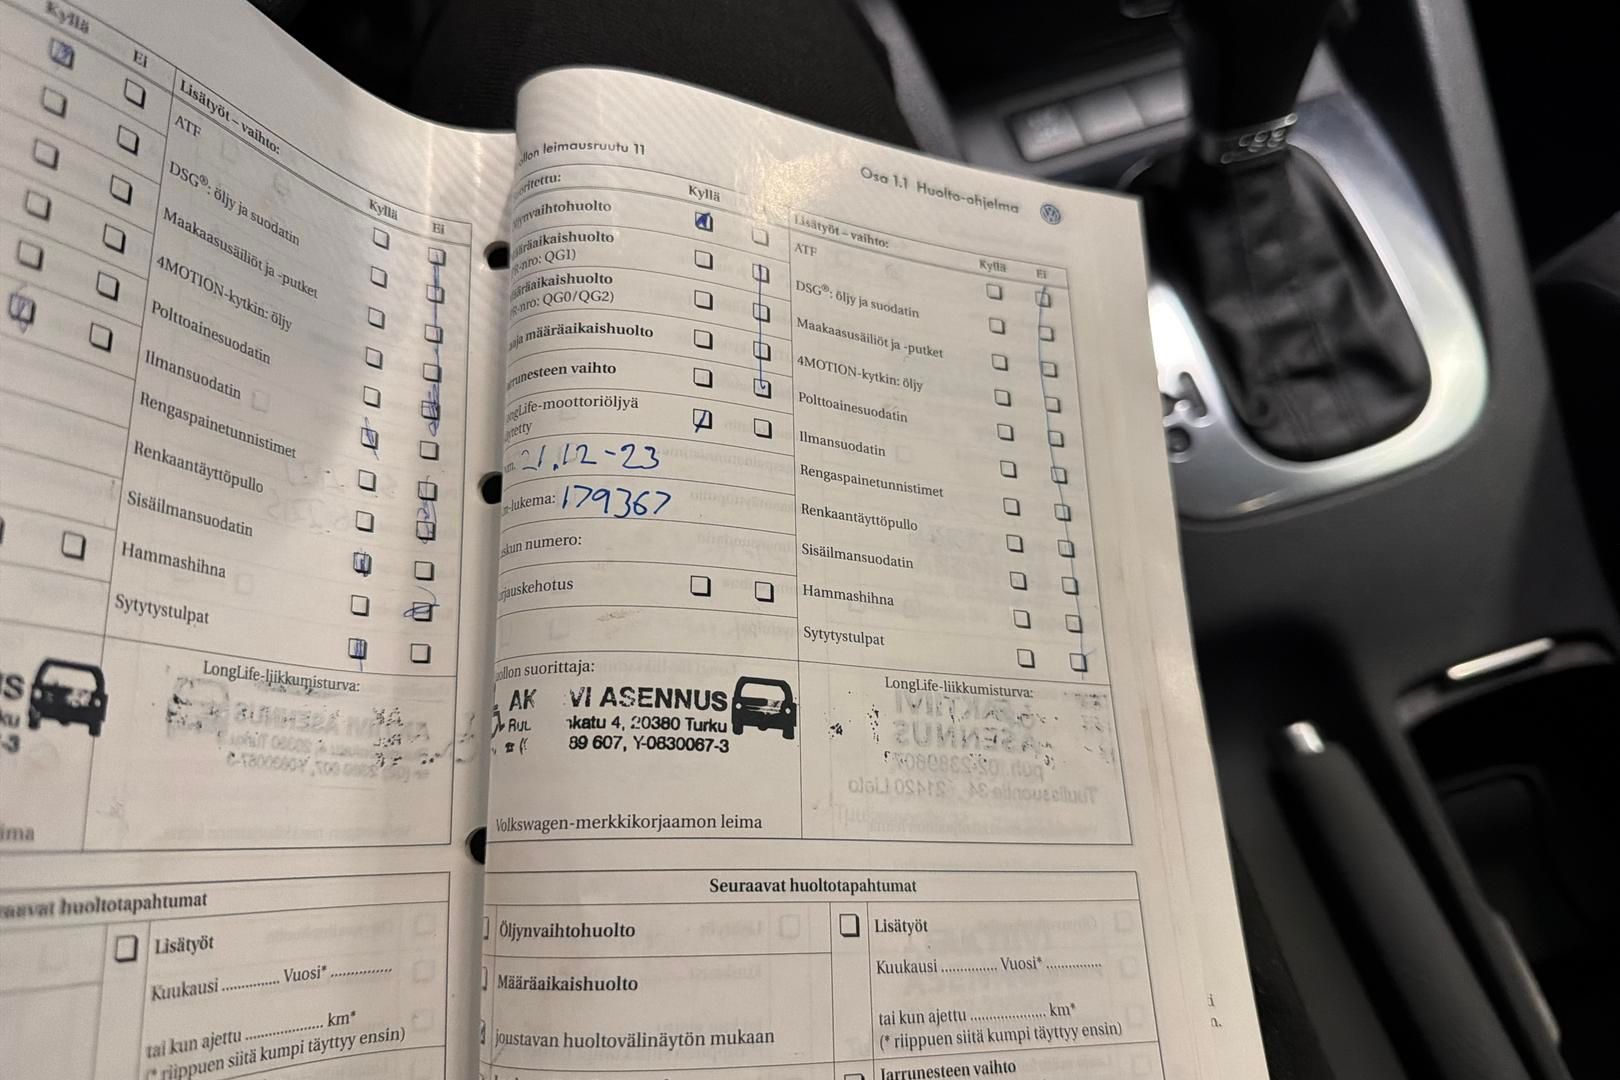 Kyllä
Ei
Lisätyöt – vaihto:
ATF
Kyllä
Ei
DSG®: öljy ja suodatin
Maakaasusäiliöt ja -putket
4MOTION-kytkin: öljy
Polttoainesuodatin
Ilmansuodatin
Rengaspainetunnistimet
Renkaantäyttöpullo
Sisäilmansuodatin
Hammashihna
Sytytystulpat
LongLife-liikkumisturva:
huoltotapahtumat
Lisätyöt
Kuukausi .............. Vuosi* ..............
tai kun ajettu .................. km*
(* riippuen siitä kumpi täyttyy ensin)
leimausruutu 11
Osa 1.1 Huolto-ohjelma
Kyllä
QG1)
QG0/QG2)
määräaikaishuolto
vaihto
21.12-23
179367
numero:
suorittaja:
VI ASENNUS
4, 20380 Turku
89 607, Y-0830067-3
Volkswagen-merkkikorjaamon leima
Lisätyöt – vaihto:
Kyllä
Ei
ATF
DSG®: öljy ja suodatin
Maakaasusäiliöt ja -putket
4MOTION-kytkin: öljy
Polttoainesuodatin
Ilmansuodatin
Rengaspainetunnistimet
Renkaantäyttöpullo
Sisäilmansuodatin
Hammashihna
Sytytystulpat
LongLife-liikkumisturva:
Seuraavat huoltotapahtumat
Öljynvaihtohuolto
Määräaikaishuolto
joustavan huoltovälinäytön mukaan
Lisätyöt
Kuukausi .............. Vuosi* ..............
tai kun ajettu .................. km*
(* riippuen siitä kumpi täyttyy ensin)
Jarrunesteen vaihto